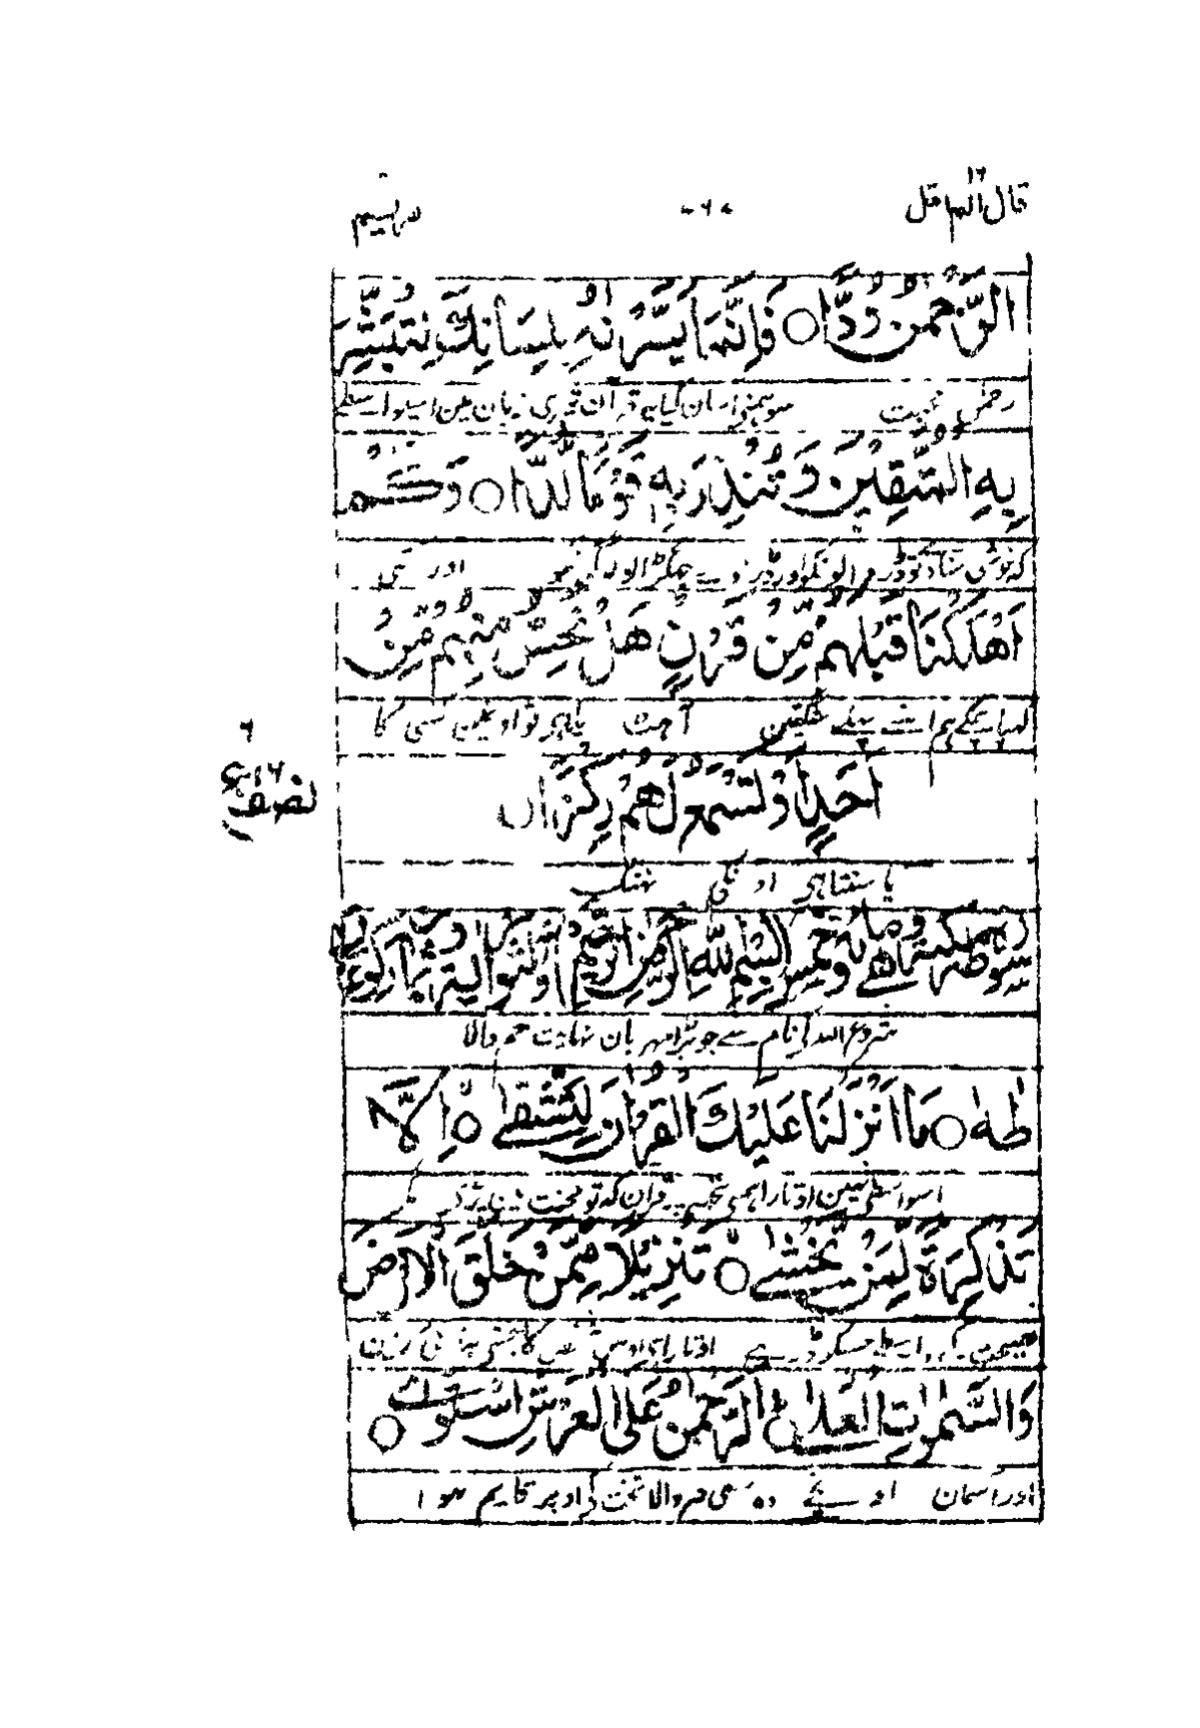 قال الم اقل
۶۰۷
مریم
الرَّحْمٰنُ وُدًّا ○ فَاِنَّمَا یَسَّرْنٰهُ بِلِسَانِكَ لِتُبَشِّرَ
رحمٰن محبت سو ہمنے آسان کیا یہ قرآن تیری زبان مین اسیواسطے
بِهِ الْمُتَّقِیْنَ وَ تُنْذِرَ بِهٖ قَوْمًا لُّدًّا ○ وَكَمْ
کہ خوشی سناوے تو ڈر والونکو اور ڈراوے جھگڑالو لوگونکو اور کتنی
اَهْلَكْنَا قَبْلَهُمْ مِّنْ قَرْنٍ هَلْ تُحِسُّ مِنْهُمْ مِّنْ
کھپا چکے ہم انسے پہلے سنگتین آہٹ پاتا ہے تو اونمین کسی کا
اَحَدٍ اَوْ تَسْمَعُ لَهُمْ رِكْزًا
۶
۱۶
نصف
یا سنتا ہی اونکی بھنک
سورة طه مكية وهي مائة وخمس بسم الله الرحمن الرحيم وثلثون اية
شروع اللہ کے نام سے جو بڑا مہربان نہایت رحم والا
طٰهٰ ○ مَا اَنْزَلْنَا عَلَیْكَ الْقُرْاٰنَ لِتَشْقٰی ○ اِلَّا
اسواسطے نہین اوتارا ہمنے تجھ پر قرآن کہ تو محنت مین پڑے مگر
تَذْكِرَةً لِّمَنْ یَّخْشٰی ○ تَنْزِیْلًا مِّمَّنْ خَلَقَ الْاَرْضَ
نصیحت کے واسطے جسکو ڈر ہے اوتارا ہی اوس شخص کا جسنے بنائی زمین
وَالسَّمٰوٰتِ الْعُلٰی الرَّحْمٰنُ عَلَی الْعَرْشِ اسْتَوٰی ○
اور آسمان اونچے وہ بڑی مہر والا تخت کے اوپر قایم ہوا